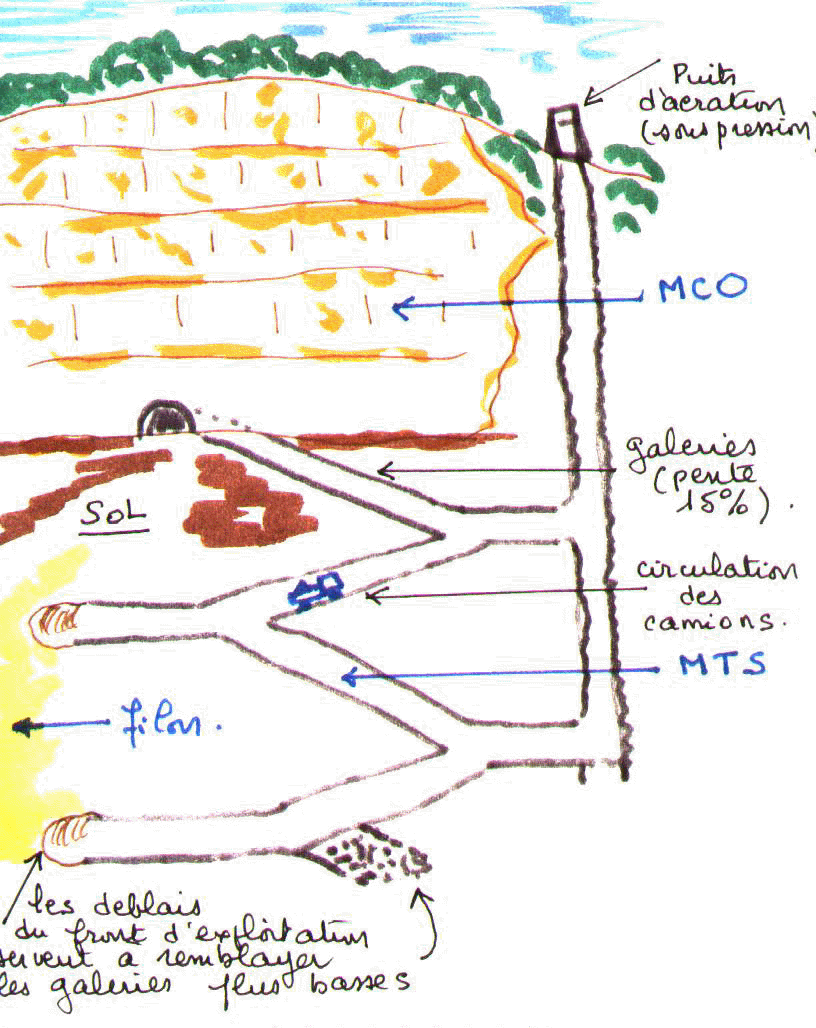 Puits
d'aeration
(sous pression)
MCO
galeries
(pente
15%).
SOL
circulation
des
camions.
MTS
filon.
les deblais
du front d'exploitation
servent a remblayer
les galeries plus basses